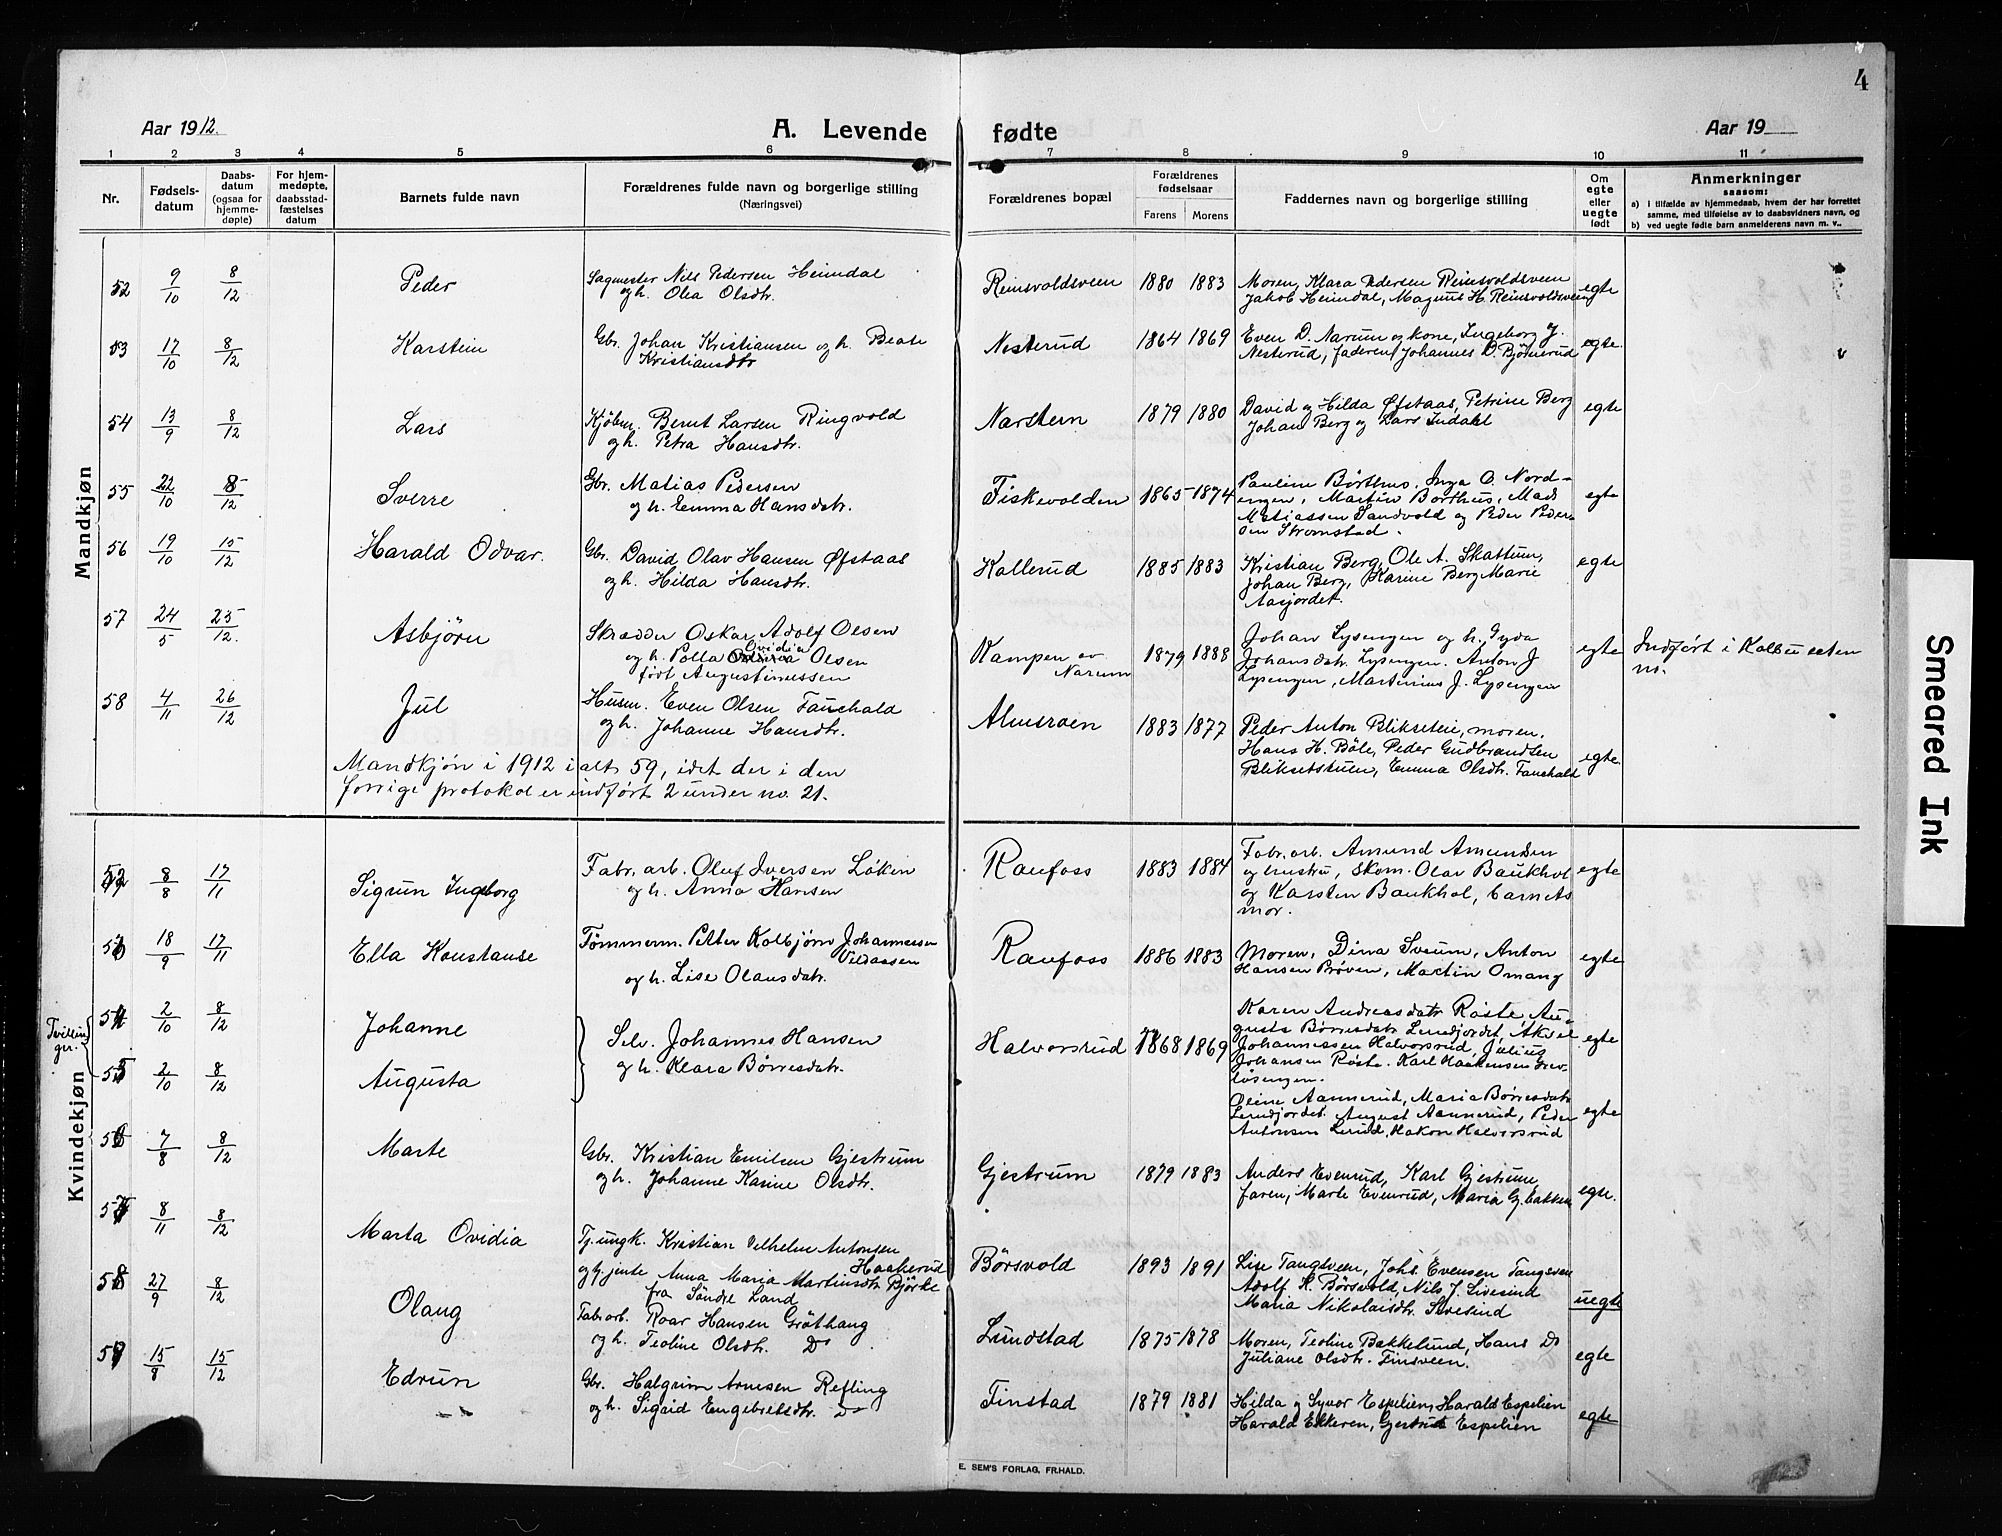 4
Aar 1912.
A. Levende fødte
Aar 19
1 2 3 4 5 6 7 8 9 10 11
Nr.
Fødselsdatum
Daabsdatum (ogsaa for hjemmedøpte)
For hjemmedøpte, daabsstadfæstelses datum
Barnets fulde navn
Forældrenes fulde navn og borgerlige stilling
(Næringsvei)
Forældrenes bopæl
Forældrenes fødselsaar
Farens Morens
Faddernes navn og borgerlige stilling
Om egte eller uegte født
Anmerkninger
saasom:
a) i tilfælde av hjemmedaab, hvem der har forrettet
samme, med tilføielse av to daabsvidners navn, og
b) ved uegte fødte barn anmelderens navn m. v..
Mandkjøn
52 9/10 8/12 Peder
Sagmester Nils Pedersen Heimdal
og h. Olea Olsdtr.
Reinsvoldsveen 1880 1883
Moren, Klara Pedersen Reinsvoldsveen
Jakob Heimdal, Magnus H. Reinsvoldsveen
egte
53 17/10 8/12 Karstein
Gbr. Johan Kristiansen og h. Beate
Kristiansdtr
Nesterud 1864 1869
Even D. Narum og kone, Ingeborg J.
Nesterud, faderen, Johannes D. Bjørnerud
egte.
54 13/9 8/12 Lars
Kjøbm. Bernt Larsen Ringvold
og h. Petra Hansdtr.
Narstern 1879 1880
David og Hilda Øfstaas, Petrine Berg
Johan Berg og Lars Indahl
egte
55 22/10 8/12 Sverre
Gbr. Matias Pedersen
og h. Emma Hansdatr.
Fiskevolden 1865 1874
Pauline Børthus, Inga O. Nord-
engen, Martin Børthus, Mads
Matiassen Sandvold og Peder Peder-
sen Strømstad.
egte
56 19/10 15/12 Harald Odvar.
Gbr. David Olav Hansen Øfstaas
og h. Hilda Hansdtr.
Kallerud 1885 1883
Kristian Berg, Ole A. Skattum,
Johan Berg, Karine Berg, Marie
Aasjordet.
egte
57 24/5 25/12. Asbjörn
Skrædder Oskar Adolf Olsen
og h. Polla Ovidia Olsen
født Augustinussen
Kampen av
Narum
1879 1888
Johan Lysengen og h. Gyda
Johansdatr. Lysengen. Anton J
Lysengen, Martinius J. Lysengen
egte
Indført i Kolbu uten
no.
58 4/11 26/12 Jul
Husm. Even Olsen Fauchald
og h. Johanne Hansdtr.
Almsroen 1883 1877
Peder Anton Blikseteie, moren.
Hans H. Bøle, Peder Gudbrandsen
Bliksetstuen, Emma Olsdtr. Fauchald
egte.
Mandkjøn i 1912 i alt 59, idet der i den
forrige protokol er indført 2 under no. 21.
Kvindekjøn
52 8/8 17/11 Sigrun Ingeborg
Fabr. arb. Oluf Iversen Løken
og h. Anna Hansen
Raufoss 1883 1884
Fabr. arb. Amund Amundsen
og hustru, Skom. Olav Baukhol
og Karsten Baukhol, barnets
mor.
egte
53 18/9 17/11 Ella Konstanse
Tømmerm. Petter Kolbjørn Johannessen
Vildaasen
og h. Lise Olausdatr.
Raufoss 1886 1883
Moren, Dina Sveum, Anton
Hansen Brøven, Martin Omang
egte
Tvillin-
ger.
54 2/10 8/12 Johanne
Selv. Johannes Hansen
og h. Klara Børresdatr.
Halvorsrud 1868 1869
Karen Andreasdatr Røste Au-
gusta Børresdatr. Lundjordet, Aksel
Johannessen Halvorsrud, Julius
Johansen Røste. Karl Haakensen
egte
55 2/10 8/12 Augusta
Oline Aannerud, Maria Børresdatr
Lundjordet. August Aannerud, Peder
Antonsen Lund, Hakon Halvorsrud
egte
56 7/8 8/12 Marte
Gbr. Kristian Emilsen Gjestrum
og h. Johanne Karine Olsdtr.
Gjestrum 1879 1883
Anders Evenrud, Karl Gjestrum,
faren, Marte Evenrud, Maria Gj.bakken
egte.
57 8/11 8/12 Marta Ovidia
Tj. ungk. Kristian Vilhelm Antonsen
Haakerud
og tj. jente Anna Maria Martinsdtr Bjørke
fra Søndre Land
Børsvold 1893 1891
Lise Tangsveen, Johs. Evensen Tangsveen
Adolf K. Børsvold, Nils J. Sivesind
Maria Nikolaisdtr. Sivesind
uegte
58 27/9 8/12 Olaug
Fabr.arb. Roar Hansen Gröthaug
og h. Teoline Olsdtr. Do
Lundstad 1875 1878
Moren, Teoline Bakkelund, Hans Do
Juliane Olsdtr. Finsveen.
egte
59 15/8 15/12 Edrun
Gbr. Halgrim Arnesen Refling
og h. Sigrid Engebretsdtr. Do
Finstad 1879 1881
Hilda og Syvor Espelien, Harald Espelien
Harald Ekkeren, Gjertrud Espelien
egte
E. SEM'S FORLAG, FR.HALD.
Smeared Ink